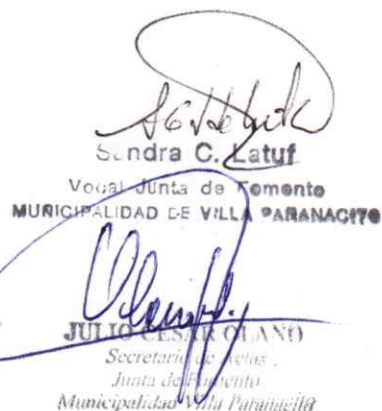 Sandra C. Latuf
Vocal Junta de Fomento
MUNICIPALIDAD DE VILLA PARANACITO
JULIO CESAR OLANO
Secretario de Actas
Junta de Fomento
Municipalidad Villa Paranacito